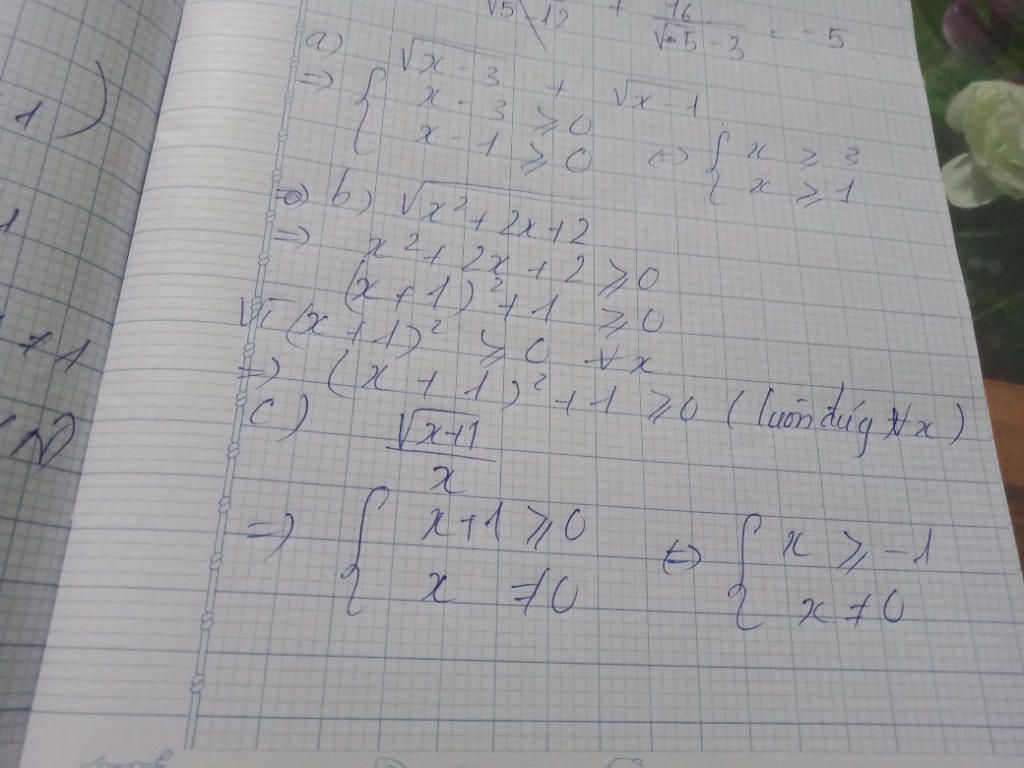 √5 - 12 + 16/(√5 - 3) = -5
a) √x - 3 + √x - 1
=> { x - 3 ≥ 0
x - 1 ≥ 0 <=> { x ≥ 3
x ≥ 1
b) √x² + 2x + 2
=> x² + 2x + 2 ≥ 0
(x + 1)² + 1 ≥ 0
Vì (x + 1)² ≥ 0 ∀x
=> (x + 1)² + 1 ≥ 0 (luôn đúg ∀x)
c) √x+1
x
=> { x+1 ≥ 0 <=> { x ≥ -1
x ≠ 0 x ≠ 0
1)
+1